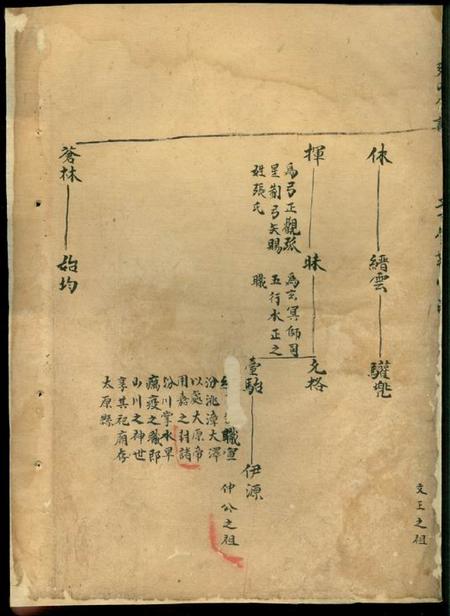 休
縉雲
驩兜
文王之祖
揮
為弓正觀弧
星制弓矢賜
姓張氏
昧
為玄冥師司
五行水正之
職
允格
臺駘
職宣
汾洮漳大澤
以處大原帝
用嘉之封諸
汾川掌水旱
癘疫之職即
山川之神世
享其祀廟存
太原縣
伊源
仲公之祖
蒼林
始均